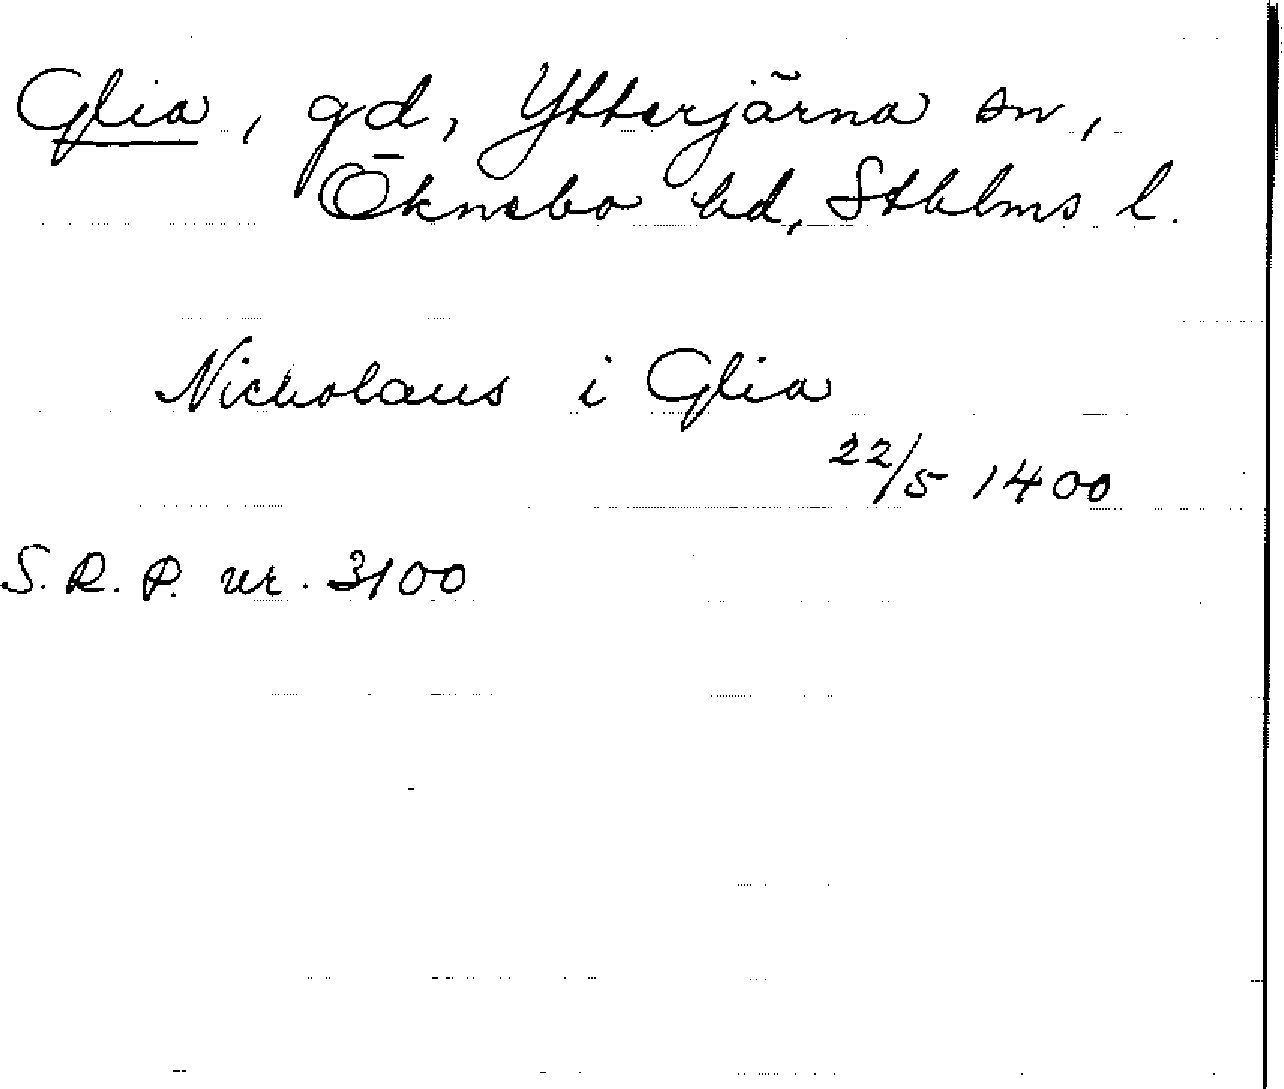 Glia, gd, Ytterjärna sn,
Öknebo hd, Sthlms l.
Nicholaus i Glia
22/5 1400
S.R.P. nr. 3100